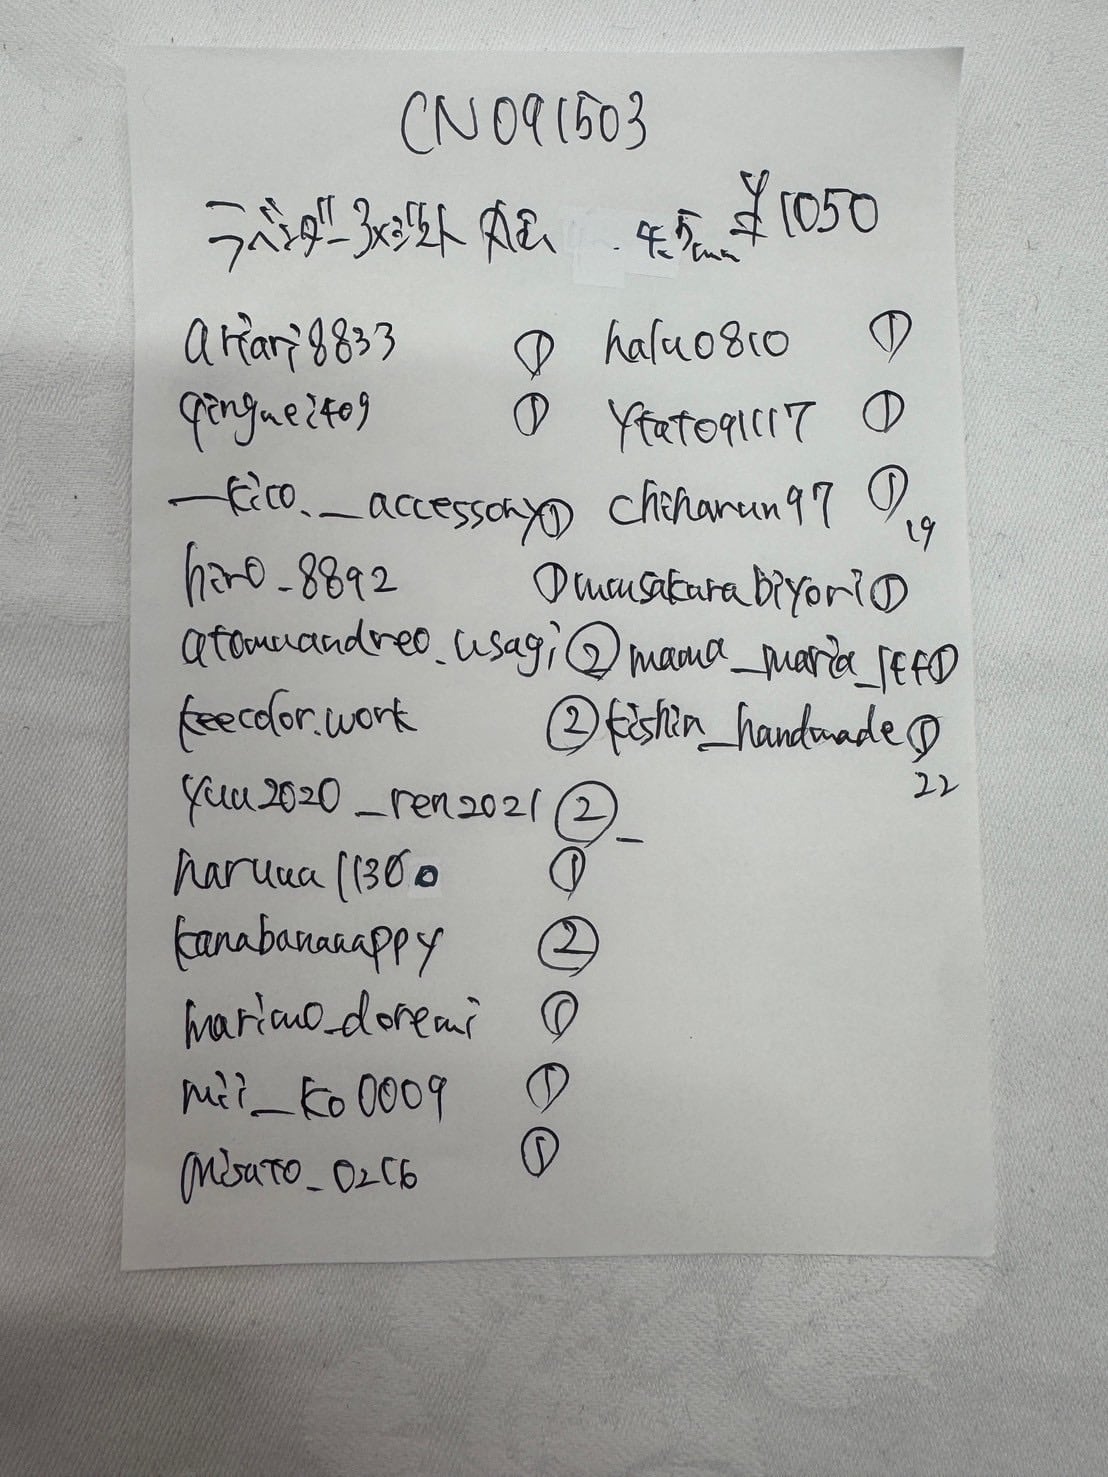 CN091503
ラベンダーアメジスト 4.5mm ¥1050
ariari8833 ①
qingmei409 ①
—kico.__accessory①
hiro_8892 ①
atomuandreo.usagi ②
keecolor.work ②
yuu2020_ren2021 ②
haruaa11300 ①
kanabanaaappy ②
marimo_doremi ①
mii_ko0009 ①
misato_0216 ①
halu0810 ①
ytato91117 ①
chiharun97 ①
19
mmsakurabiyori ①
mama_maria_jeff①
kishin_handmade①
22